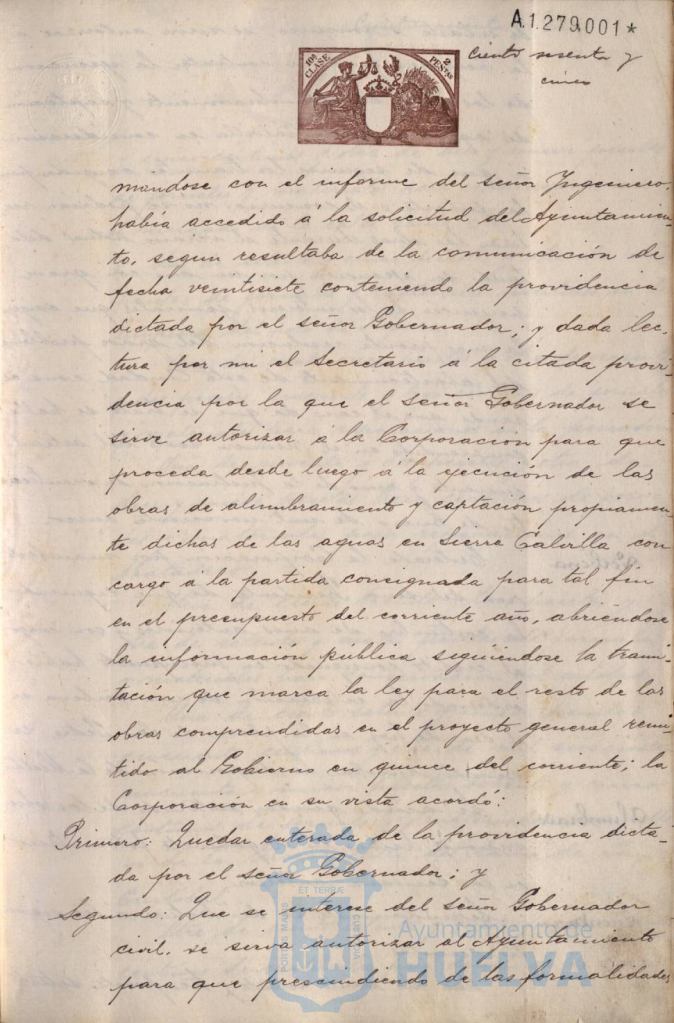 A.1.279.001*
ciento sesenta y
cinco
10ª CLASE
2 PESETAS
mándose con el informe del señor Yngeniero,
había accedido á la solicitud del Ayuntamien-
to, segun resultaba de la comunicación de
fecha veintisiete conteniendo la providencia
dictada por el señor Gobernador; y dada lec-
tura por mi el Secretario á la citada provi-
dencia por la que el señor Gobernador se
sirve autorizar á la Corporación para que
proceda desde luego á la ejecución de las
obras de alumbramiento y captación propiamen-
te dichas de las aguas en Sierra Calvilla con
cargo á la partida consignada para tal fin
en el presupuesto del corriente año, abriéndose
la información pública siguiéndose la trami-
tación que marca la ley para el resto de las
obras comprendidas en el proyecto general remi-
tido al Gobierno en quince del corriente; la
Corporación en su vista acordó:
Primero: Quedar enterada de la providencia dicta-
da por el señor Gobernador; y
Segundo: Que se interese del señor Gobernador
civil, se sirva autorizar al Ayuntamiento
para que prescindiendo de las formalidades
PORTUS MARIS ET TERRÆ CUSTODIA
Ayuntamiento de
HUELVA